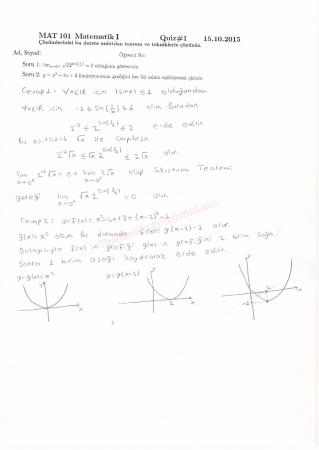 MAT 101 Matematik I Quiz#1 15.10.2015
Çözümlerinizi bu derste anlatılan teorem ve tekniklerle çözünüz.
Ad, Soyad: Öğrenci No:
Soru 1: lim x→0⁺ √x2^sin(1/x) = 0 olduğunu gösteriniz.
Soru 2: y = x² − 4x + 3 fonksiyonunun grafiğini her bir adımı açıklayarak çiziniz.
Cevap 1: ∀x∈ℝ için |sinx| ≤ 1 olduğundan
∀x∈ℝ için -1 ≤ sin(1/x) ≤ 1 olur. Buradan
2⁻¹ ≤ 2^sin(1/x) ≤ 2 elde edilir.
Bu eşitsizlik √x ile çarpılırsa
2⁻¹√x ≤ √x 2^sin(1/x) ≤ 2√x olur.
lim x→0⁺ 2⁻¹√x = 0 = lim x→0⁺ 2√x olup Sıkıştırma Teoremi
gereği lim x→0⁺ √x 2^sin(1/x) = 0 olur.
Cevap 2: y = f(x) = x² - 4x + 3 = (x-2)² - 1
g(x) = x² olsun. Bu durumda f(x) = g(x-2) - 1 olur.
Dolayısıyla f(x) in grafiği g(x) in grafiğini 2 birim sağa
Sonra 1 birim aşağı kaydırarak elde edilir.
y = g(x) = x² y = g(x-2)
y x y 2 x y 2 x -1
1